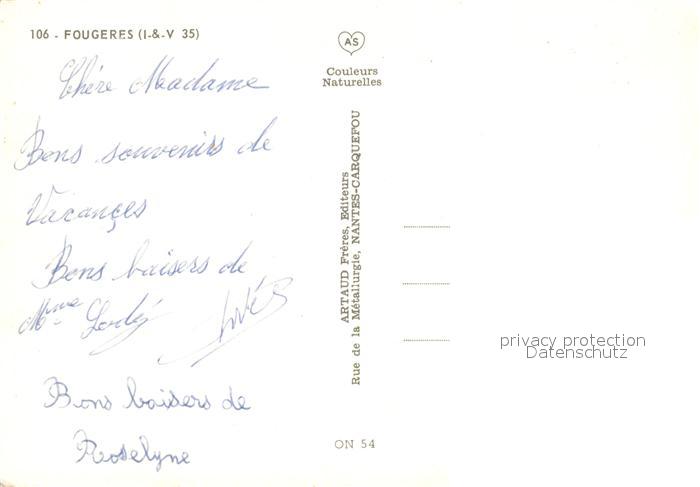 106 - FOUGERES (I-&-V 35)
AS
Couleurs
Naturelles
Chère Madame
Bons souvenirs de
Vacançes
Bons baisers de
Mme
Bons baisers de
Roselyne
ARTAUD Frères, Editeurs
Rue de la Métallurgie, NANTES-CARQUEFOU
ON 54
privacy protection
Datenschutz